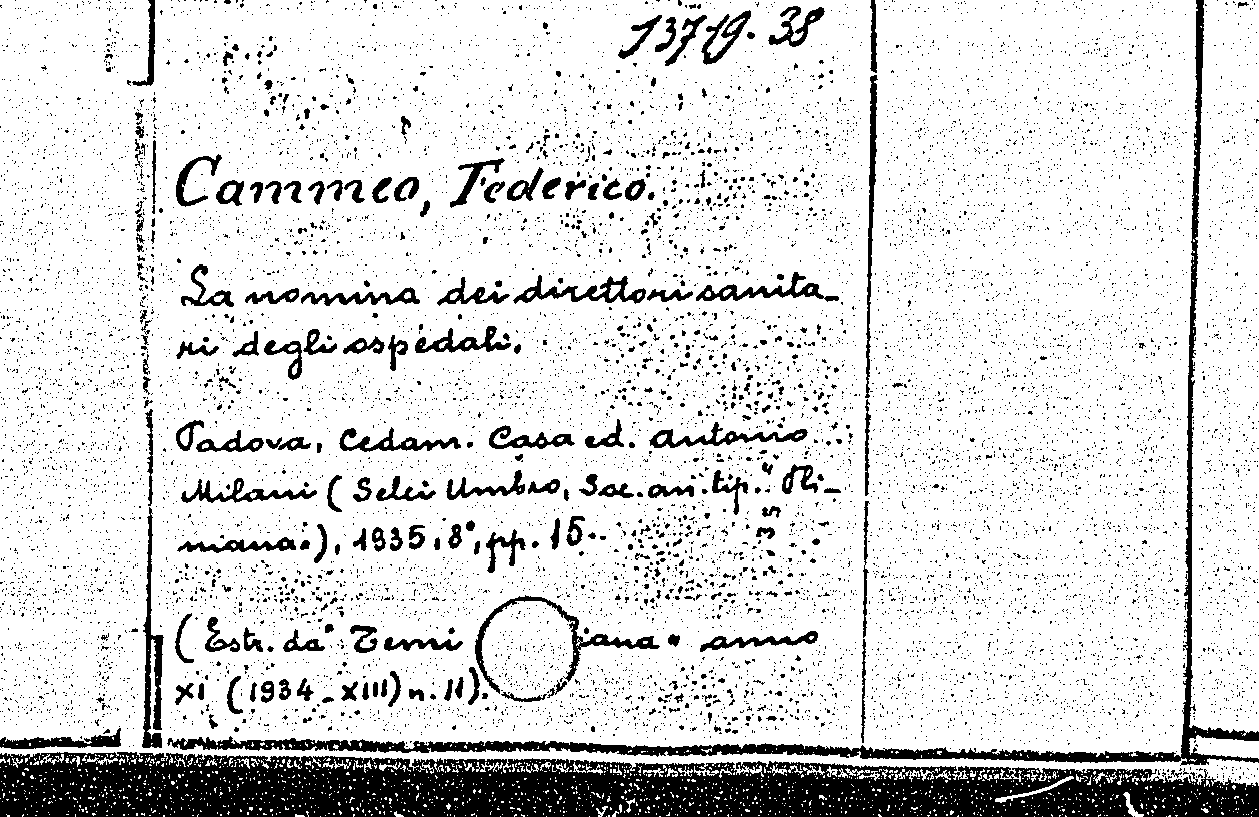 137-19. 38
Cammeo, Federico.
La nomina dei direttori sanita-
ri degli ospedali.
Padova, Cedam. Casa ed. Antonio
Milani (Selci Umbro, Soc. an. tip. "Pli-
niana"), 1935, 8°, pp. 15.
35
(Estr. da "Temi iana" anno
XI (1934-XIII) n. 11).